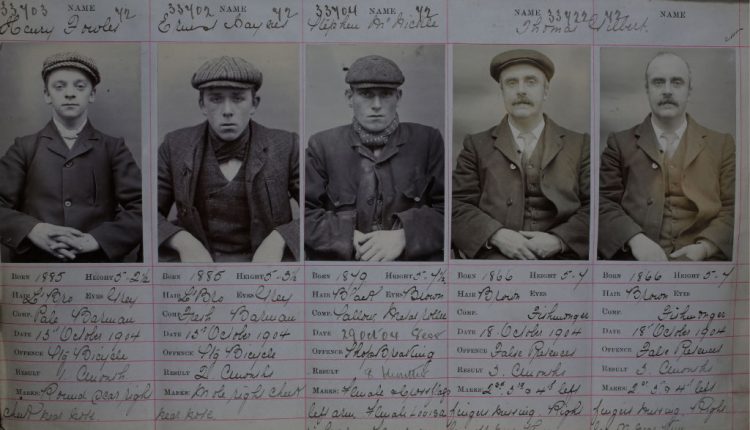 33703 NAME 72 33702 NAME 72 33704 NAME 72 NAME 33722 72 NAME
Henry Fowler Ernest Stephen Thomas Gilbert
BORN 1885 HEIGHT 5-2½ BORN 1885 HEIGHT 5-3½ BORN 1870 HEIGHT 5-4½ BORN 1866 HEIGHT 5-4 BORN 1866 HEIGHT 5-4
HAIR Lt Bro EYES Grey HAIR Lt Bro EYES Grey HAIR Black EYES Brown HAIR Brown EYES HAIR Brown EYES
COMP. Pale Barman COMP. Fresh Barman COMP. Sallow Dealer COMP. Fishmonger COMP. Fishmonger
DATE 15th October 1904 DATE 15th October 1904 DATE 29 Oct 04 DATE 18 October 1904 DATE 18th October 1904
OFFENCE Stg Bicycle OFFENCE Stg Bicycle OFFENCE Shopbreaking OFFENCE False Pretences OFFENCE False Pretences
RESULT 1 Month RESULT 2 Months RESULT RESULT 3 Months RESULT 3 Months
MARKS: Round scar right MARKS: Mole right cheek MARKS: Female MARKS: 2nd 3rd & 4th left MARKS: 2nd 3 & 4th left
cheek near nose near nose left arm Female fingers missing. Right fingers missing. Right